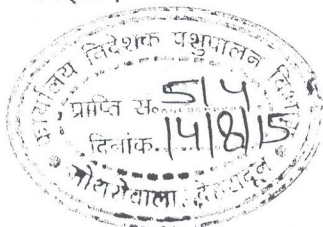 कार्यालय निदेशक पशुपालन विभाग
प्राप्ति स० 514
दिनांक. 14/8/15
मोथरोवाला, देहरादून